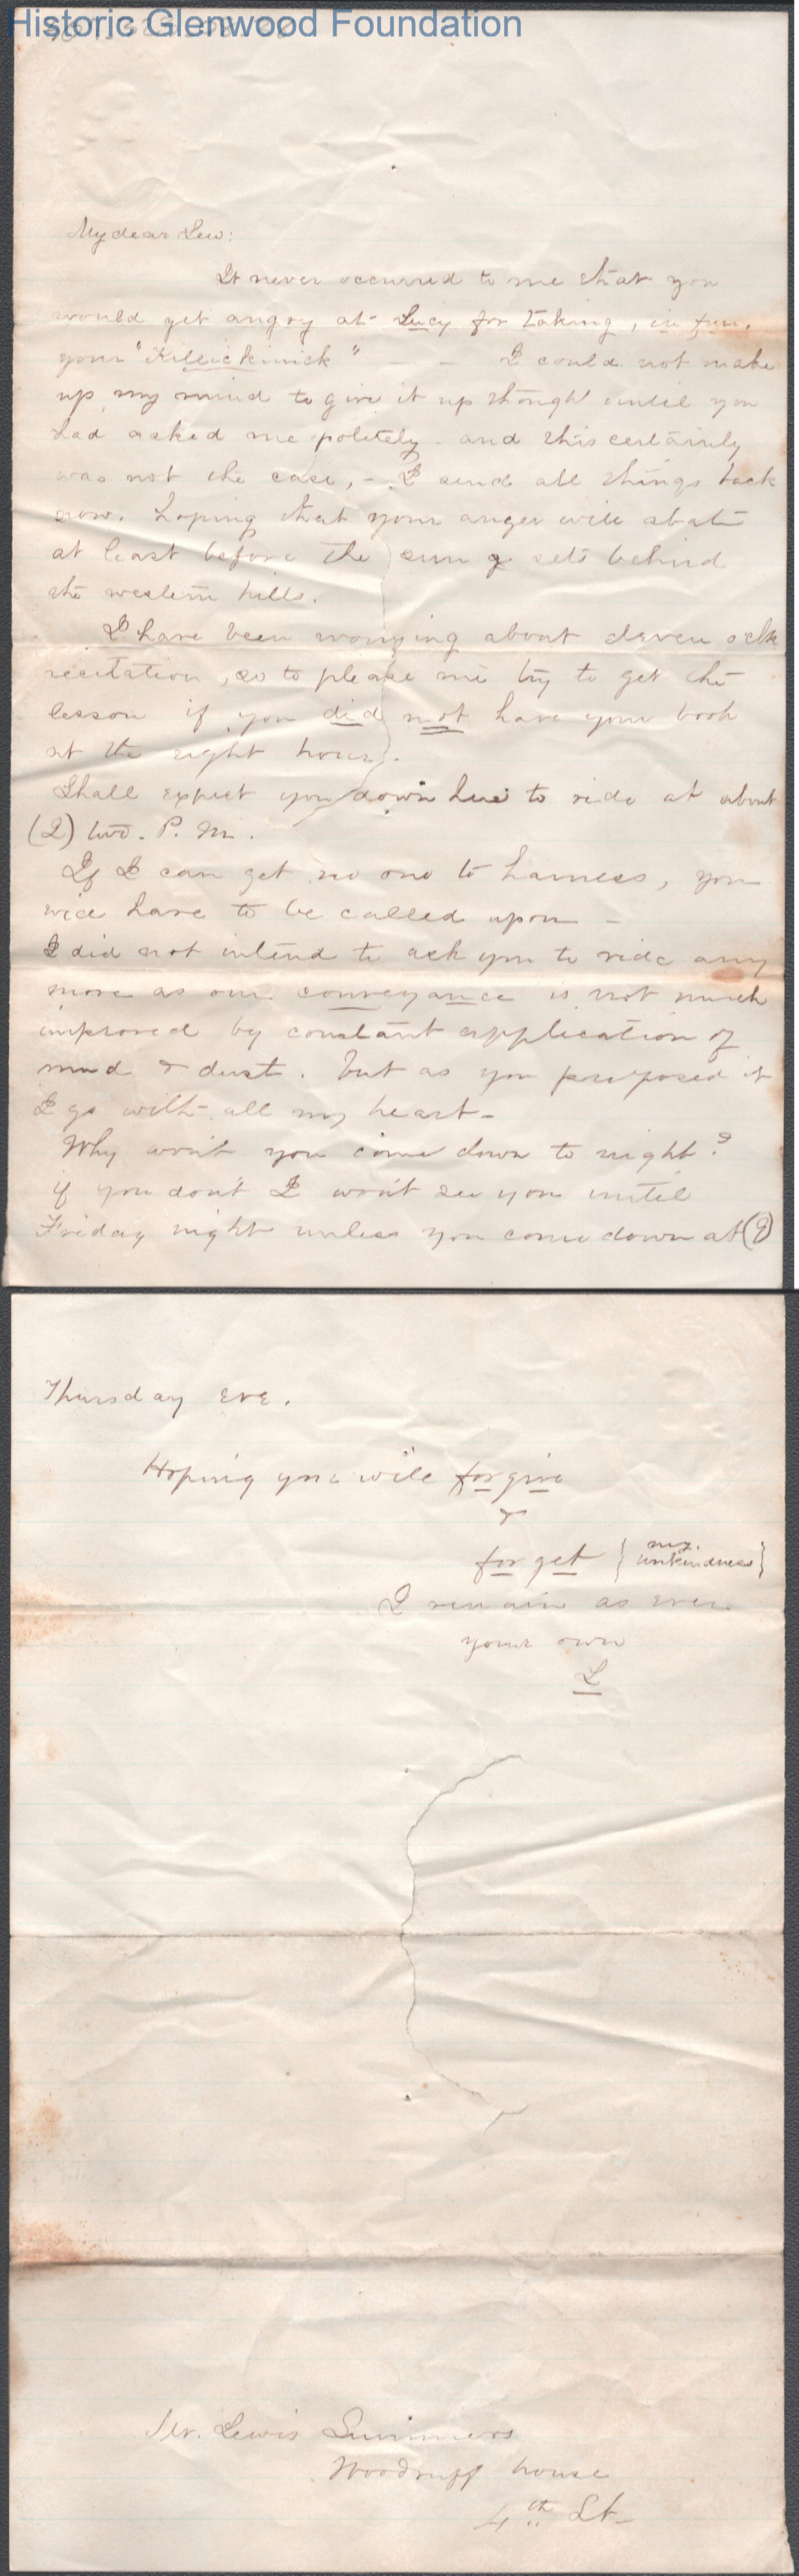 Historic Glenwood Foundation
My dear Lew:
It never occurred to me that you
would get angry at Lucy for taking, in fun,
your "Killickinick" – – I could not make
up my mind to give it up though until you
had asked me politely – and this certainly
was not the case, – I send all things back
now. hoping that your anger will abate
at least before the sun sets behind
the western hills.
I have been worrying about eleven oclk
recitation, so to please me try to get the
lesson if you did not have your book
at the right hour.
Shall expect you down here to ride at about
(2) two. P. M.
If I can get no one to harness, you
will have to be called upon –
I did not intend to ask you to ride any
more as our conveyance is not much
improved by constant application of
mud & dust. but as you proposed it
I go with all my heart –
Why won't you come down to night?
if you don't I won't see you until
Friday night unless you come down at (9)
Thursday Eve.
Hoping you will forgive
&
forget { my unkindness }
I remain as ever
your own
L
Mr. Lewis Summers
Woodruff house
4th St